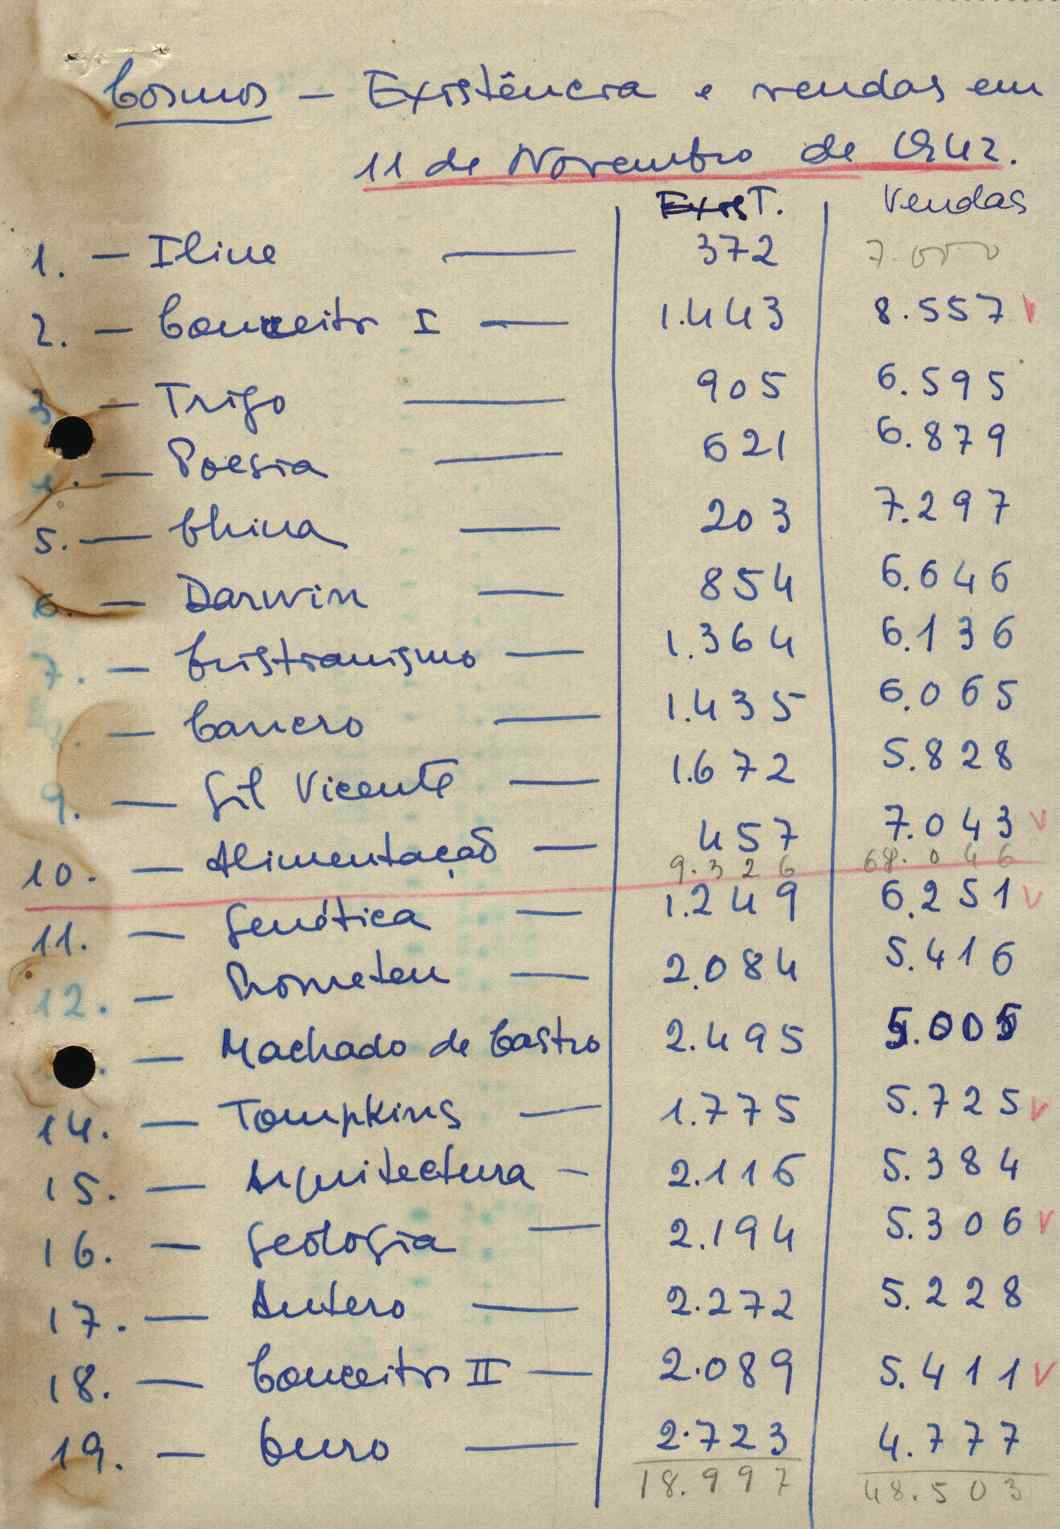 Cosmos — Existência e vendas em
11 de Novembro de 1942.
Exist. Vendas
1. — Iline — 372 7.000
2. — Conceito I — 1.443 8.557 v
3 — Trigo — 905 6.595
4. — Poesia — 621 6.879
5. — China — 203 7.297
6. — Darwin — 854 6.646
7. — Cristianismo — 1.364 6.136
— Cancro — 1.435 6.065
9. — Gil Vicente — 1.672 5.828
10. — Alimentação — 457 7.043 v
9.326 68.046
11. — Genética — 1.249 6.251 v
12. — Prometeu — 2.084 5.416
— Machado de Castro 2.495 5.005
14. — Tompkins — 1.775 5.725 v
15. — Arquitectura — 2.116 5.384
16. — Geologia — 2.194 5.306 v
17. — Antero — 2.272 5.228
18. — Conceito II — 2.089 5.411 v
19. — Euro — 2.723 4.777
18.997 48.503